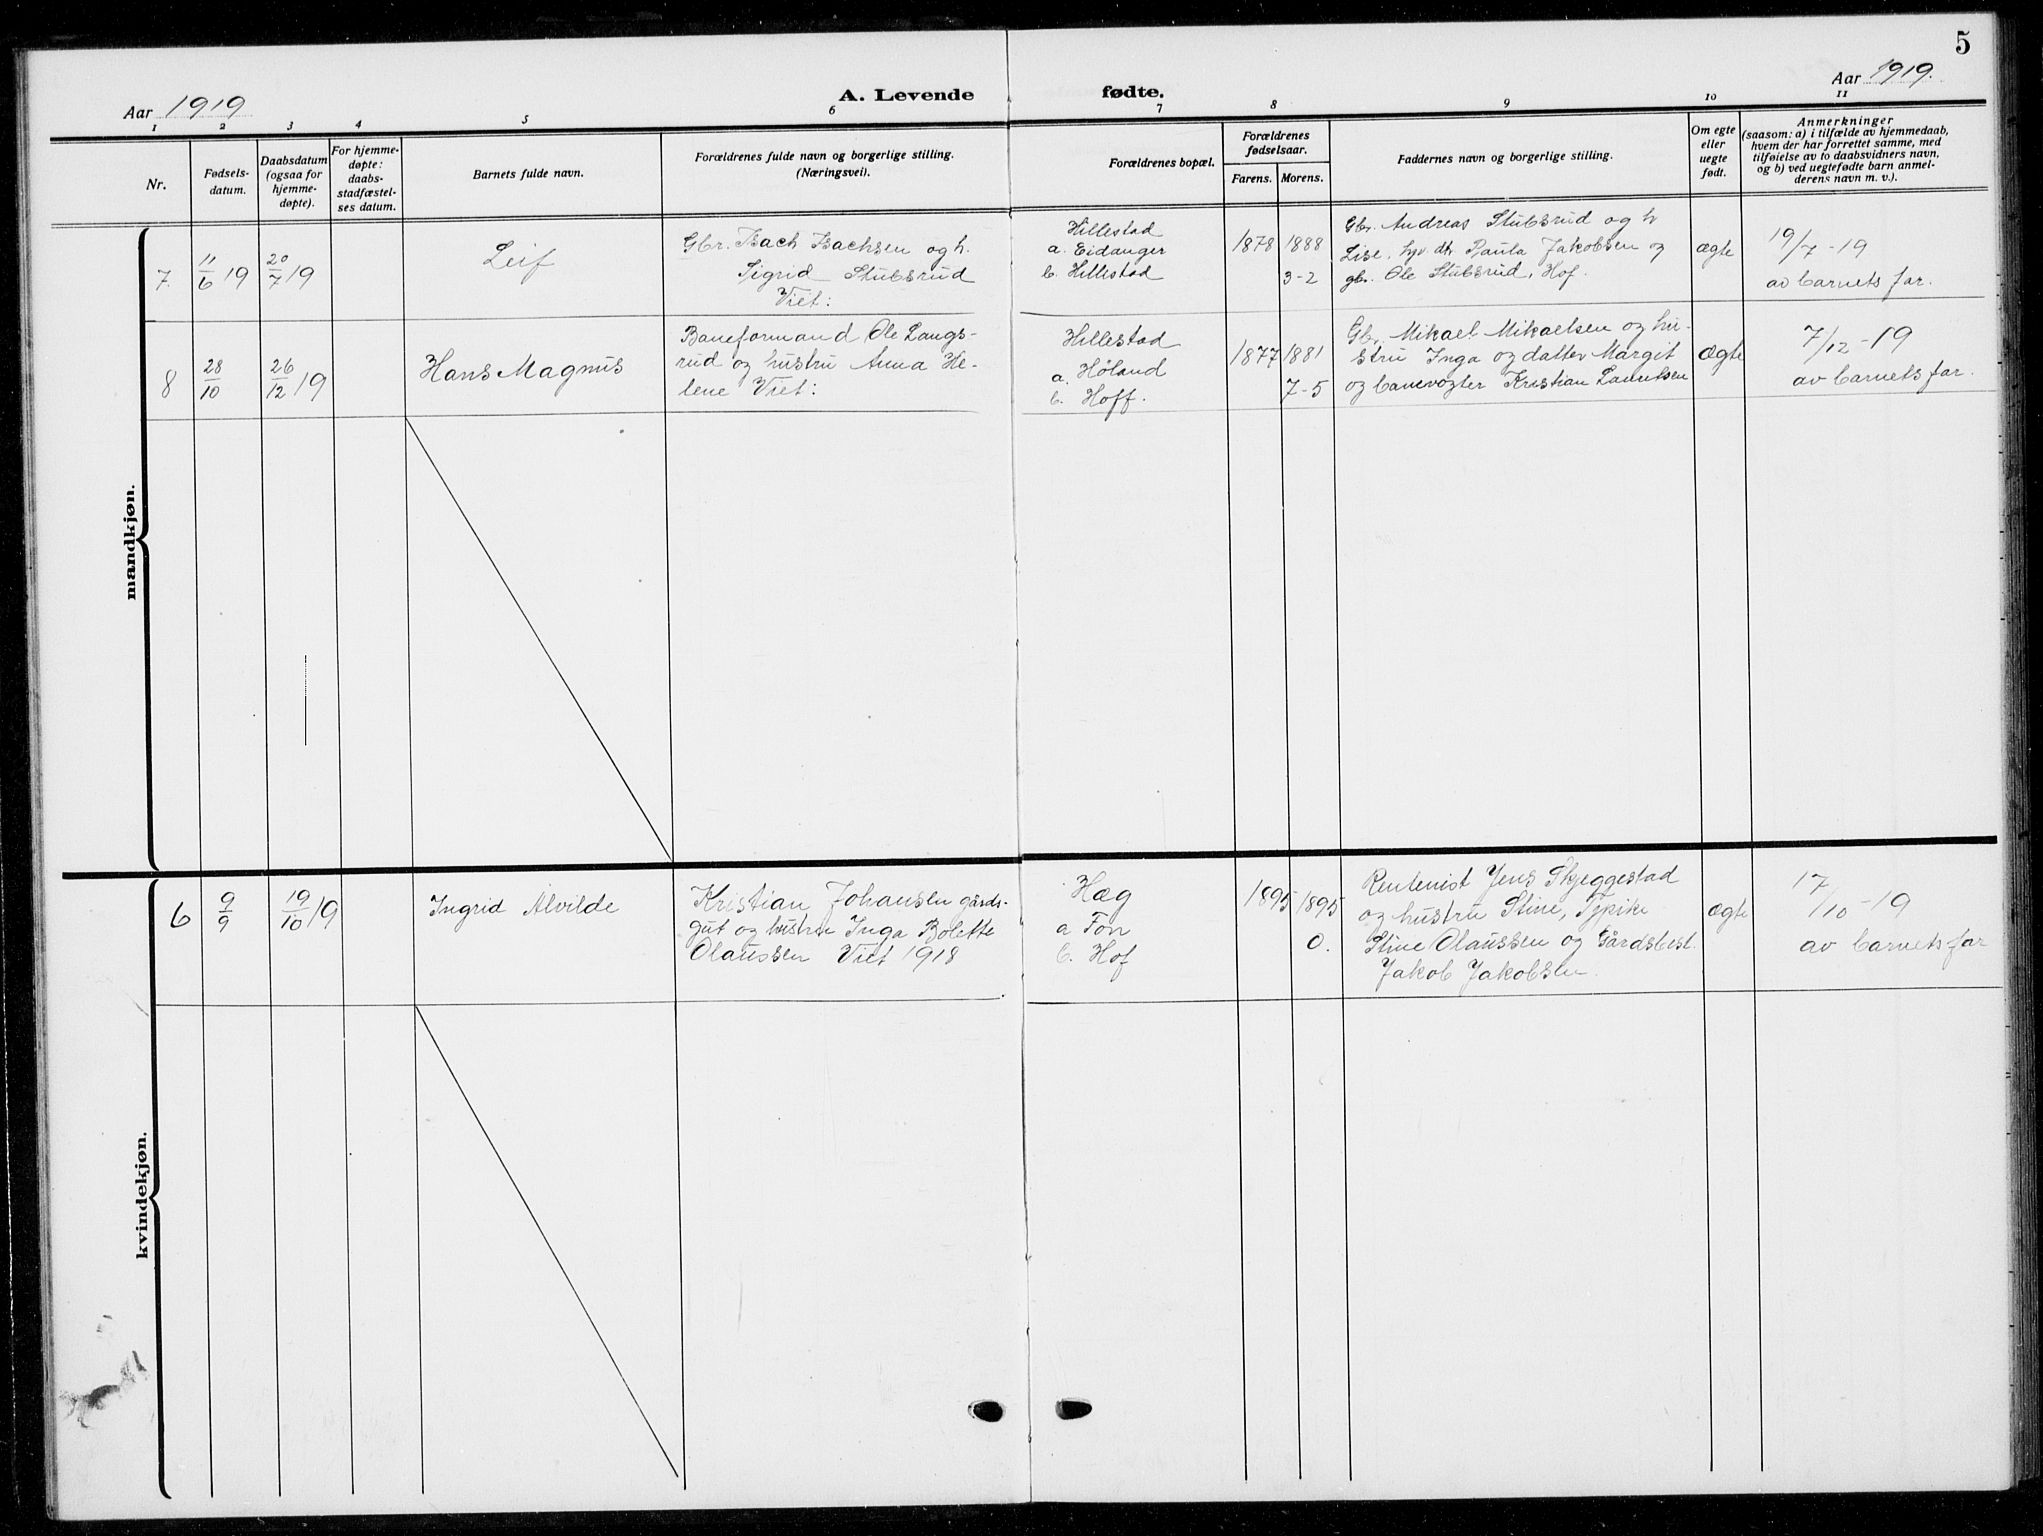 5
Aar 1919
A. Levende fødte.
Aar 1919.
1 2 3 4 5 6 7 8 9 10 11
Nr.
Fødsels-
datum.
Daabsdatum
(ogsaa for
hjemme-
døpte).
For hjemme-
døpte:
daabs-
stadfæstel-
ses datum.
Barnets fulde navn.
Forældrenes fulde navn og borgerlige stilling.
(Næringsvei).
Forældrenes bopæl.
Forældrenes
fødselsaar.
Farens. Morens.
Faddernes navn og borgerlige stilling.
Om egte
eller
uegte
født.
Anmerkninger
(saasom: a) i tilfælde av hjemmedaab,
hvem der har forrettet samme, med
tilføielse av to daabsvidners navn,
og b) ved uegtefødte barn anmel-
derens navn m. v.).
mandkjøn.
7.
11/6 19
20/7 19
Leif
Gbr. Isach Isachsen og h.
Sigrid Stubsrud
Viet:
Hillestad
a. Eidanger
b. Hillestad
1878
1888
3-2
Gbr. Andreas Stubsrud og h
Lise, hv. dtr. Paula Jakobsen og
gbr. Ole Stubsrud, Hof.
ægte
19/7-19
av barnets far.
8
28/10
26/12 19
Hans Magnus
Baneformand Ole Langs-
rud og hustru Anna He-
lene Viet:
Hillestad
a. Høland
b. Hoff.
1877
1881
7-5
Gbr. Mikael Mikaelsen og hu-
stru Inga og datter Margit
og banevogter Kristian Lauritsen
ægte
7/12-19
av barnets far.
kvindekjøn.
6
9/9
19/10 19
Ingrid Alvilde
Kristian Johansen gårds-
gut og hustru Inga Bolette
Olaussen Viet 1918
Hæg
a Fon
b. Hof
1895
1895
0.
Rentenist Jens Skjeggestad
og hustru Stine, Tpike
Stine Olaussen og Gårdsbest.
Jakob Jakobsen.
ægte
17/10-19
av barnets far